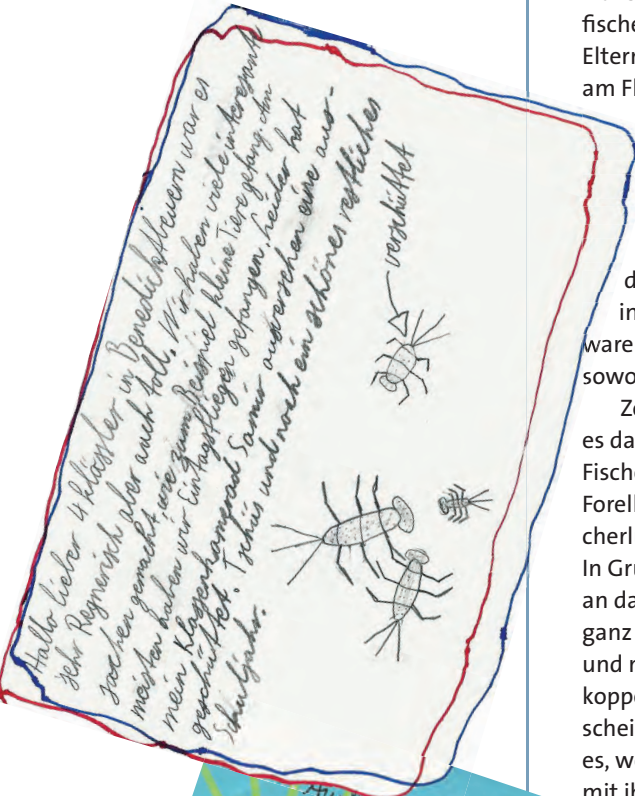 Hallo lieber 4 klässler in Benedicktbeuern war es
sehr Regnerisch aber auch toll. Wir haben viele interesante
sachen gemacht wie zum Beispiel kleine Tiere gefangen. Am
meisten haben wir Eintagsfliegen gefangen, leider hat
mein Klassenkamerad Samir ausversehen eine aus-
geschüttet. Tschüs und noch ein schönes restliches
Schuljahr.
verschüttet
fische
Elterr
am Fl
d
in
ware
sowo
Ze
es da
Fische
Forell
cherl
In Gru
an da
ganz
und r
koppe
schei
es, w
mit ih